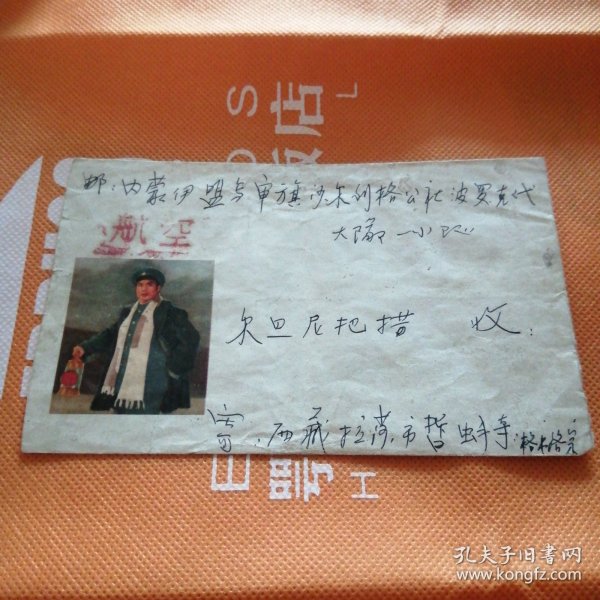 邮：内蒙伊盟乌审旗沙尔利格公社波罗克代
大队一小队
航空
尔旦尼把措 收
寄：西藏拉萨市哲蚌寺
店
H
S
L
孔夫子旧书网
www.kongfz.com